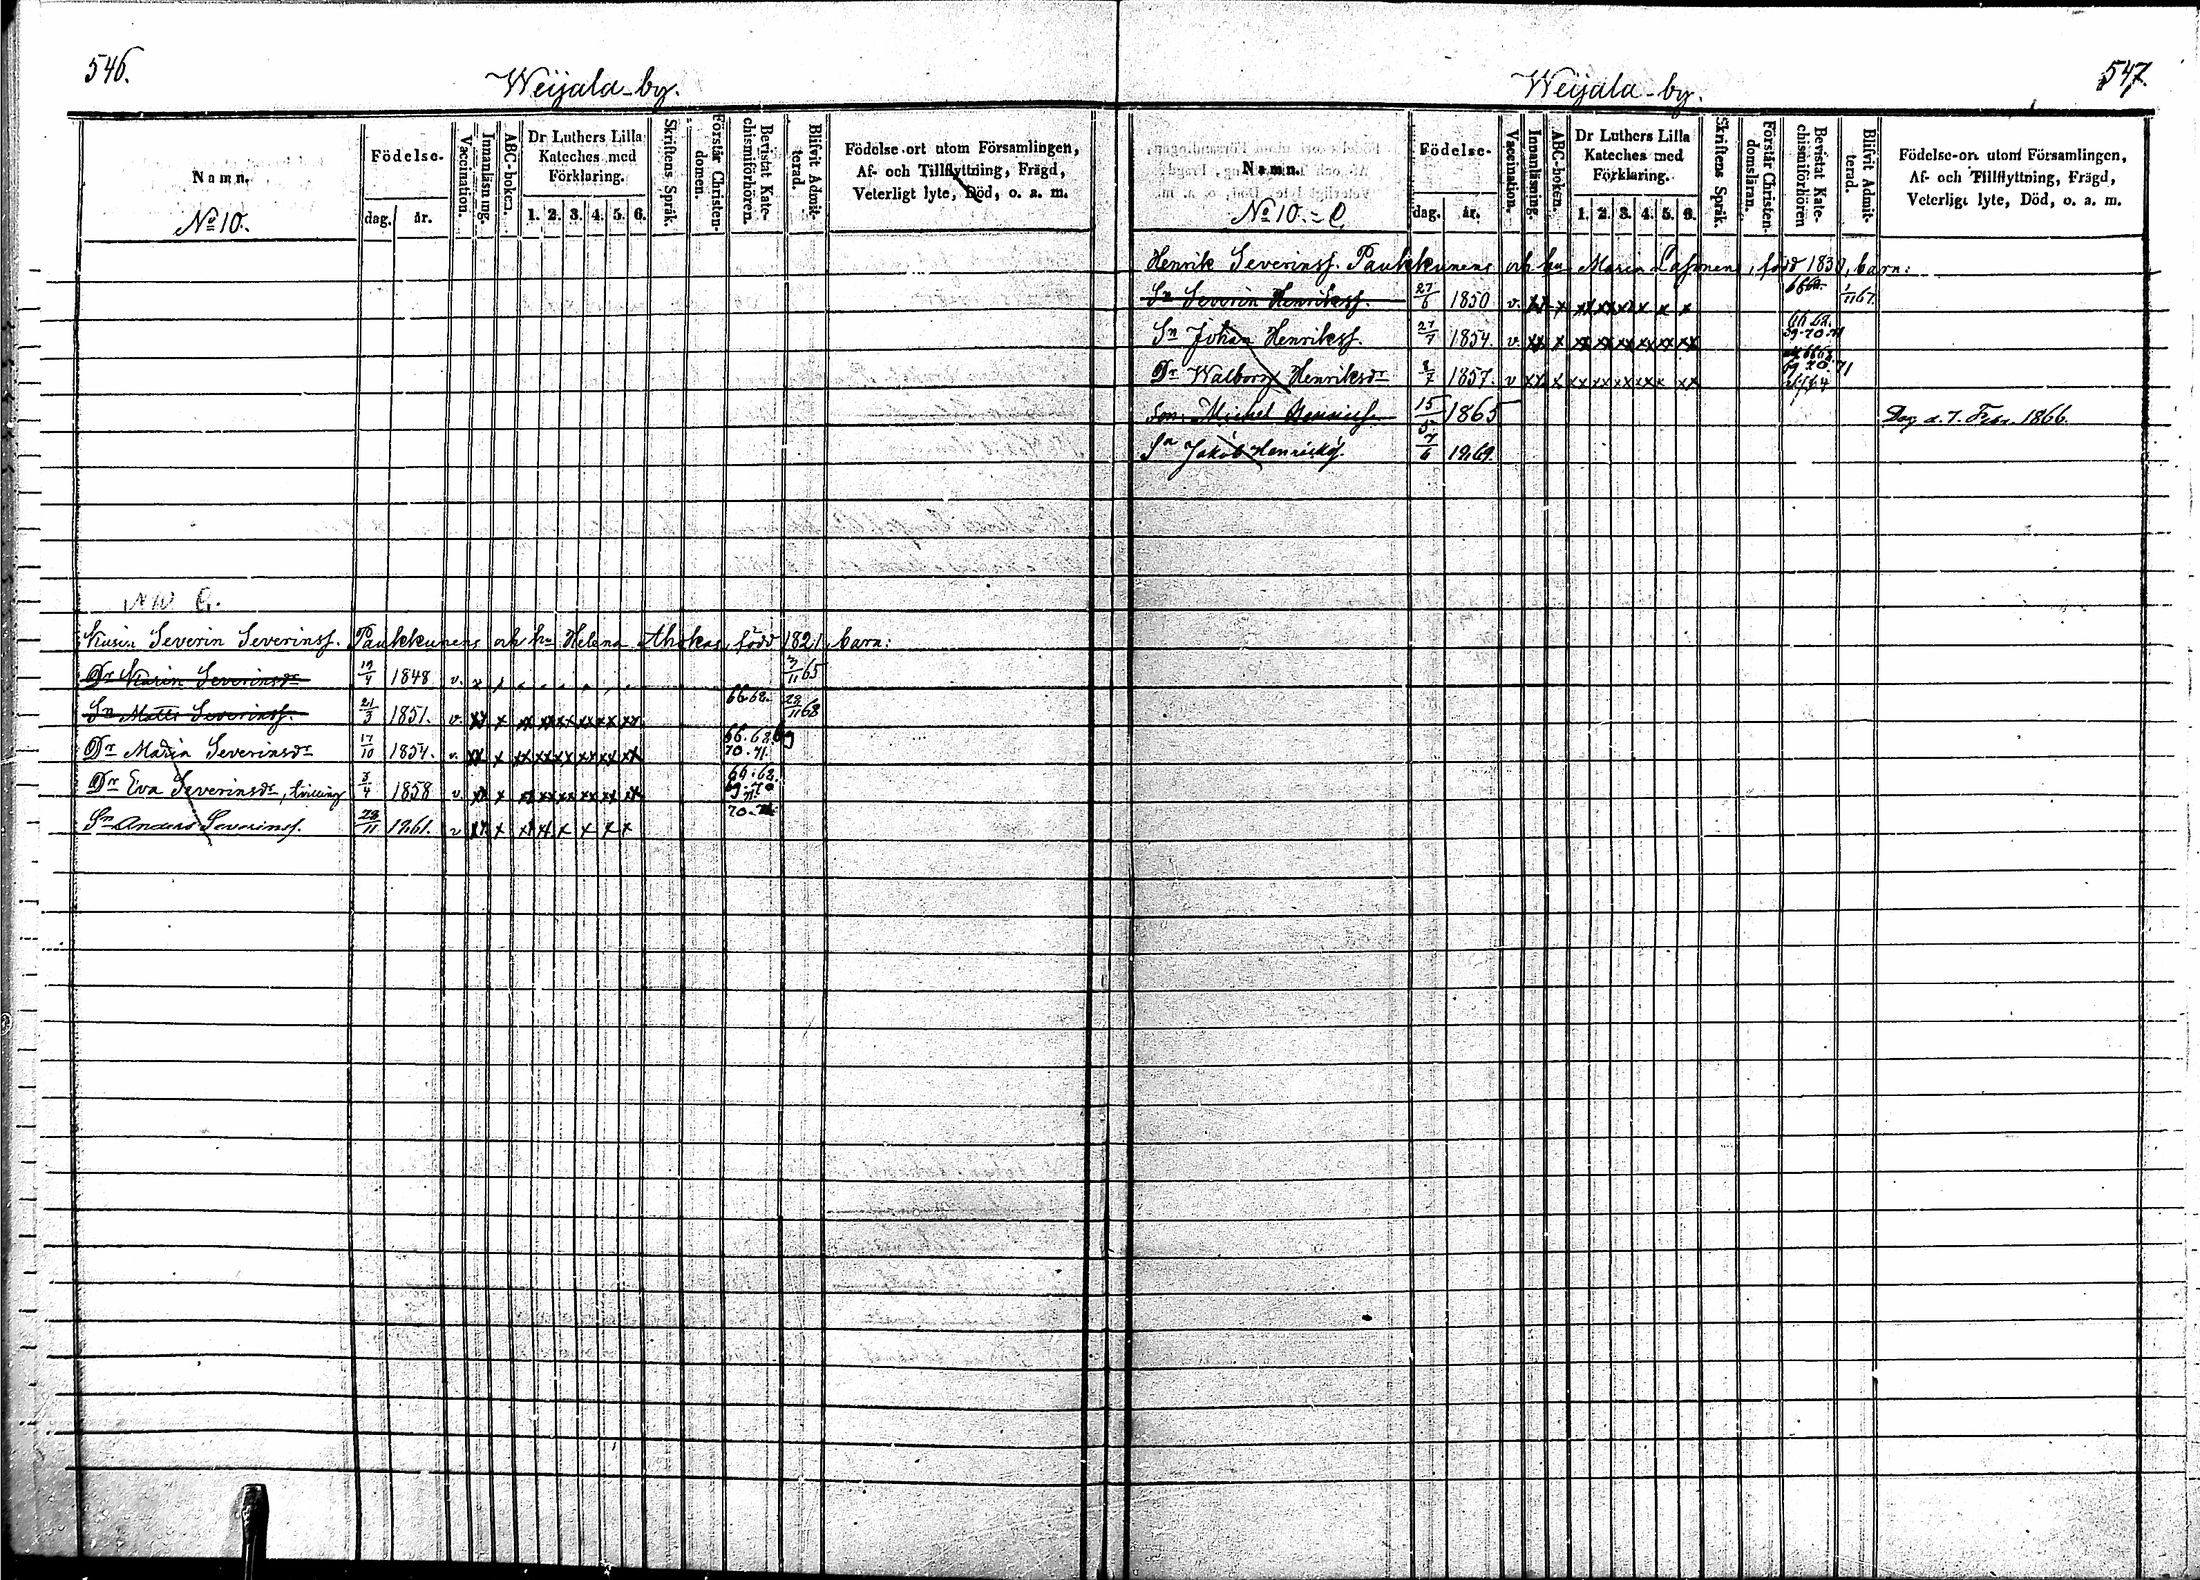 546.
Weijala-by.
Namn.
No 10.
Födelse-
dag. år.
Vaccination.
Innanläsning.
ABC-boken.
Dr Luthers Lilla
Kateches med
Förklaring.
1. 2. 3. 4. 5. 6.
Skriftens Språk.
Förstår Christen-
domen.
Bevistat Kate-
chismiförhören.
Blifvit Admit-
terad.
Födelse-ort utom Församlingen,
Af- och Tillflyttning, Frägd,
Veterligt lyte, Död, o. a. m.
Severin Severinss. Paukkunens och hu Helena Ahokas, född 1821, barn:
Dr Karin Severinsdr 19/4 1848 v. 3/11 65
Sn Matts Severinss. 21/3 1851. v. xx x xx xx xx xx xx xx 66.68. 23/11 68
Dr Maria Severinsdr 17/10 1854. v. xx x xx xx xx xx xx xx 66.68.69
70.71.
Dr Eva Severinsdr, tvilling 3/4 1858 v xx x xx xx xx xx xx xx 66.68.
69.70
71.
Sn Anders Severinss. 28/11 1861. v xx x xx xx x x x x 70.71
547.
Weijala-by.
Namn.
No 10. = C.
Födelse-
dag. år.
Vaccination.
Innanläsning.
ABC-boken.
Dr Luthers Lilla
Kateches med
Förklaring.
1. 2. 3. 4. 5. 6.
Skriftens Språk.
Förstår Christen-
domsläran.
Bevistat Kate-
chismiförhören
Blifvit Admit-
terad.
Födelse-ort utom Församlingen,
Af- och Tillflyttning, Frägd,
Veterligt lyte, Död, o. a. m.
Henrik Severinss. Paukkunens och hu Maria Lassonens, född 1830, barn:
Sn Severin Henrikss. 27/6 1850 v. xx x xx xx xx x x x 1/11 67.
Sn Johan Henrikss. 27/7 1854. v. xx x xx xx xx xx xx xx 66.68.
69.70.71
Dr Walborg Henriksdr 8/7 1857. v xx x xx xx xx xx x xx
69.70.71
Son Michel Henrikss. 15/5 1865 Dog d. 7. Febr. 1866.
Sn Jakob Henrikss. 7/6 1869.